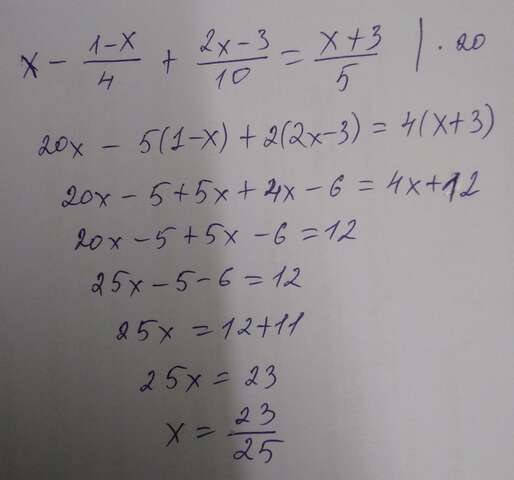 x - \frac{1-x}{4} + \frac{2x-3}{10} = \frac{x+3}{5} | · 20
20x - 5(1-x) + 2(2x-3) = 4(x+3)
20x - 5 + 5x + 4x - 6 = 4x + 12
20x - 5 + 5x - 6 = 12
25x - 5 - 6 = 12
25x = 12 + 11
25x = 23
x = \frac{23}{25}